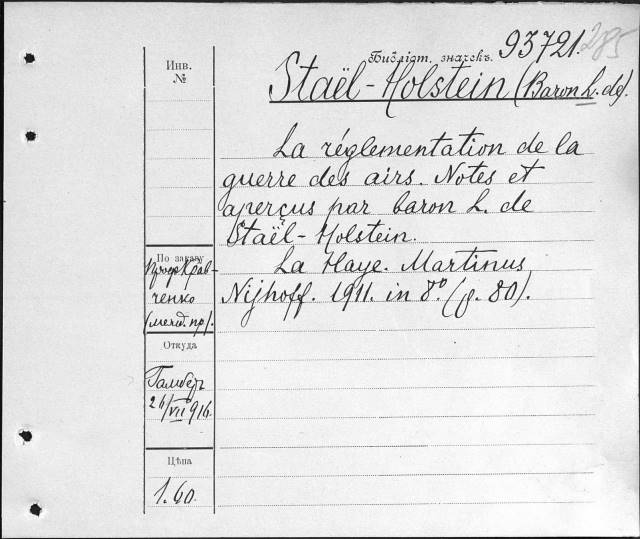 Библіот. значекъ. 93721. 285
Инв.
№
Staël-Holstein (Baron L. de).
La réglementation de la
guerre des airs. Notes et
aperçus par baron L. de
Staël-Holstein.
La Haye. Martinus
Nijhoff. 1911. in 8º (p. 80).
По заказу
Крав-
ченко
(межд. пр).
Откуда
26/VII 916.
Цѣна
1.60.